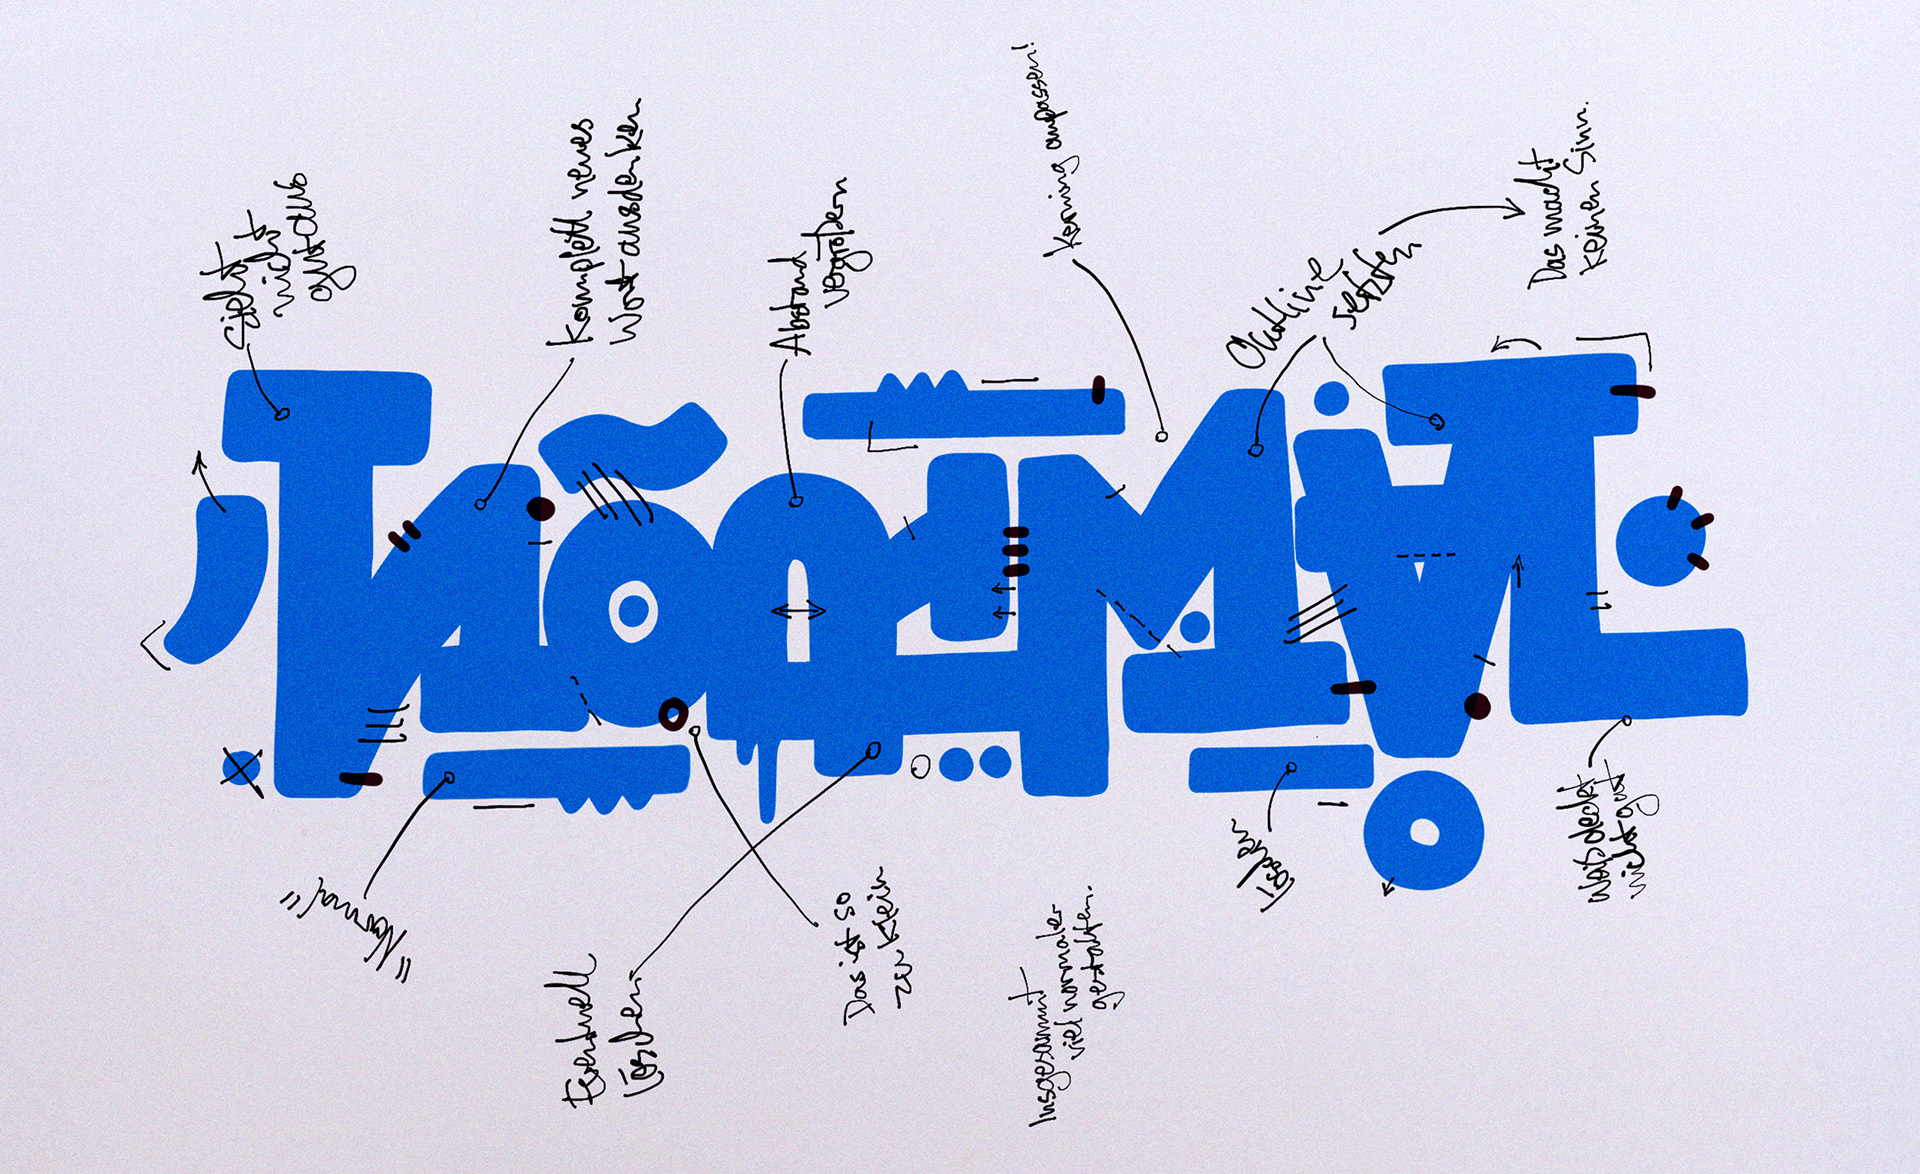 Sieht
nicht
gut aus
Komplett neues
Wort ausdenken
Abstand
vergrößern
Kerning anpassen!
Outline
setzen
Das macht
keinen Sinn.
NORMAL
"Norma"
Eventuell
löschen
Das ist so
zu klein
Insgesamt
viel normaler
gestalten.
löschen
Was deckt
nicht gut